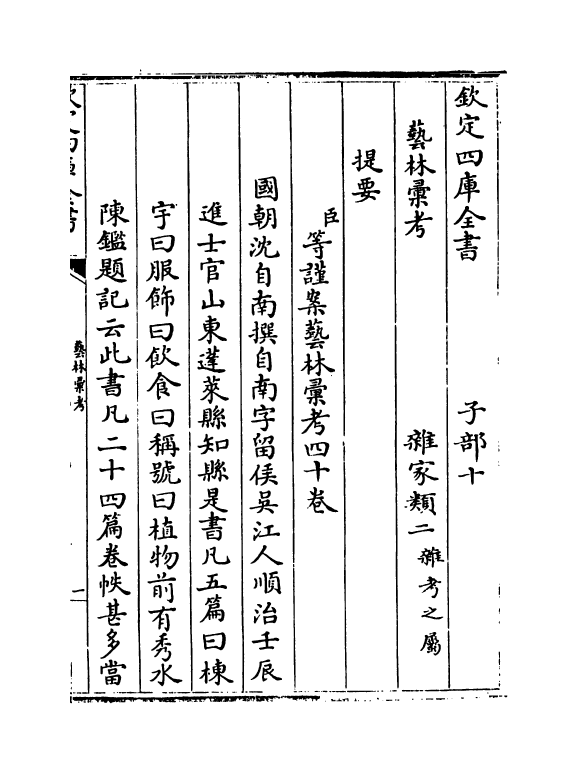 欽定四庫全書 子部十
藝林彙考 雜家類二 雜考之屬
提要
臣等謹案藝林彙考四十卷
國朝沈自南撰自南字留侯吳江人順治壬辰
進士官山東蓬萊縣知縣是書凡五篇曰棟
宇曰服飾曰飲食曰稱號曰植物前有秀水
陳鑑題記云此書凡二十四篇卷帙甚多當
藝林彙考
一